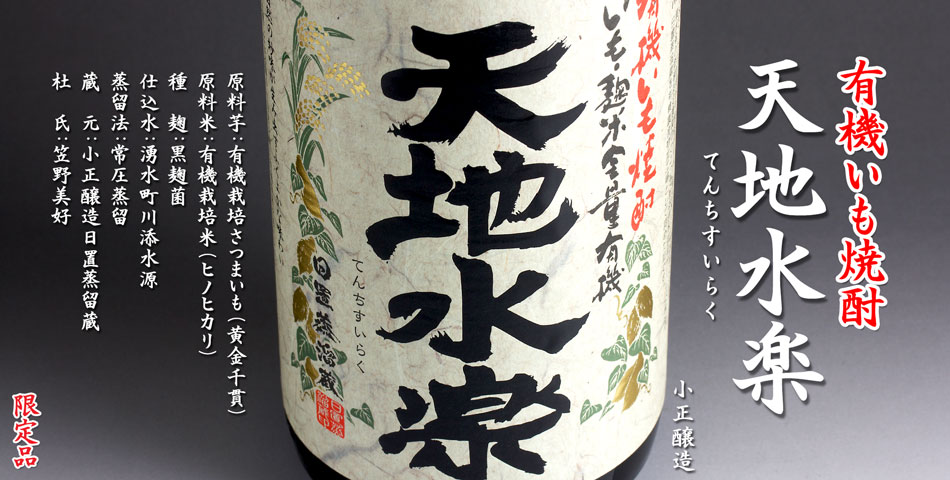 有機いも焼酎
天地水楽
てんちすいらく
小正醸造
有機いも焼酎
いも・麹米全量有機
天地水楽
てんちすいらく
日置蒸溜蔵
原料芋:有機栽培さつまいも(黄金千貫)
原料米:有機栽培米(ヒノヒカリ)
種 麹:黒麹菌
仕込水:湧水町川添水源
蒸留法:常圧蒸留
蔵 元:小正醸造日置蒸留蔵
杜 氏:笠野美好
限定品